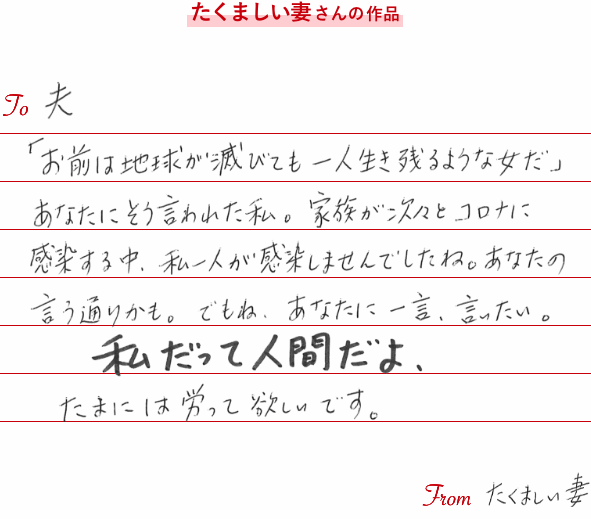 たくましい妻さんの作品
To 夫
「お前は地球が滅びても一人生き残るような女だ」
あなたにそう言われた私。家族が次々とコロナに
感染する中、私一人が感染しませんでしたね。あなたの
言う通りかも。でもね、あなたに一言、言いたい。
私だって人間だよ、
たまには労って欲しいです。
From たくましい妻